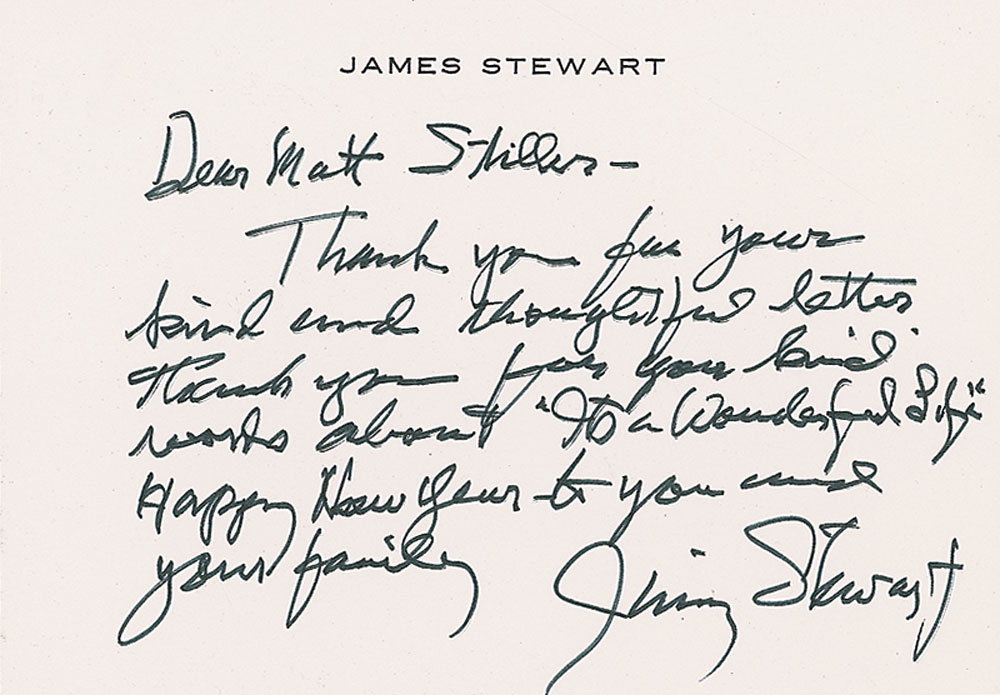 JAMES STEWART
Dear Matt Stillers –
Thank you for your
kind and thoughtful letter
Thank you for your kind
words about "It's a Wonderful Life"
Happy New Year to you and
your family
Jimmy Stewart